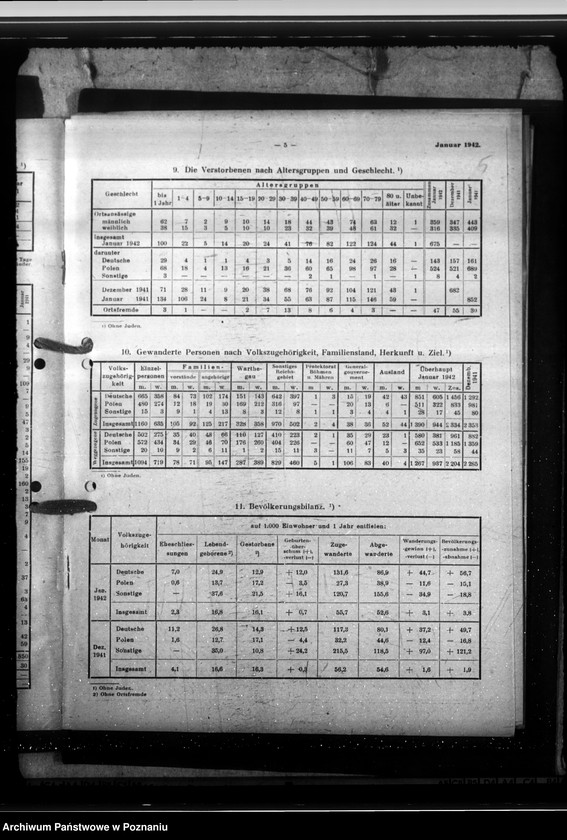 — 5 —
Januar 1942.
9. Die Verstorbenen nach Altersgruppen und Geschlecht. ¹)
Geschlecht
Altersgruppen
bis 1 Jahr 1—4 5—9 10—14 15—19 20—29 30—39 40—49 50—59 60—69 70—79 80 u. älter Unbe-kannt
Ortsansässige
männlich 62 7 2 9 10 14 18 44 43 74 63 12 1 359 347 443
weiblich 38 15 3 5 10 10 23 32 39 48 61 32 — 316 335 409
Insgesamt
Januar 1942 100 22 5 14 20 24 41 76 82 122 124 44 1 675 — —
darunter
Deutsche 29 4 1 1 4 3 5 14 16 24 26 16 — 143 157 161
Polen 68 18 4 13 16 21 36 60 65 98 97 28 — 524 521 689
Sonstige 3 — — — — — — 2 1 — 1 — 1 8 4 2
Dezember 1941 71 28 11 9 20 38 68 76 92 104 121 43 1 682
Januar 1941 134 106 24 8 21 34 55 63 87 115 146 59 — 852
Ortsfremde 3 1 — — 2 7 13 8 6 4 3 — — 47 55 30
¹) Ohne Juden.
10. Gewanderte Personen nach Volkszugehörigkeit, Familienstand, Herkunft u. Ziel.¹)
Volks-zugehörig-keit
Einzel-personen
Familien-
vorstände angehörige
Warthe-gau
Sonstiges Reichs-gebiet
Protektorat Böhmen u. Mähren
General-gouverne-ment
Ausland
Überhaupt Januar 1942
m. w. m. w. m. w. m. w. m. w. m. w. m. w. m. w. m w. Zus.
Deutsche 665 358 84 73 102 174 151 143 642 397 1 3 15 19 42 43 851 605 1 456 1 292
Polen 480 274 12 18 19 30 169 212 316 97 — — 20 13 6 — 511 322 833 961
Sonstige 15 3 9 1 4 13 8 3 12 8 1 1 3 4 4 1 28 17 45 80
Insgesamt 1160 635 105 92 125 217 328 358 970 502 2 4 38 36 52 44 1 390 944 2 334 2 333
Deutsche 502 275 35 40 43 66 110 127 410 223 2 1 35 29 23 1 580 381 961 882
Polen 572 434 34 29 46 70 176 260 404 226 — — 60 47 12 — 652 533 1 185 1 359
Sonstige 20 10 9 2 6 11 1 2 15 11 3 — 11 7 5 3 35 23 58 44
Insgesamt 1094 719 78 71 95 147 287 389 829 460 5 1 106 83 40 4 1 267 937 2 204 2 285
¹) Ohne Juden.
11. Bevölkerungsbilanz. ¹)
auf 1.000 Einwohner und 1 Jahr entfielen:
Monat
Volkszuge-hörigkeit
Eheschlies-sungen
Lebend-geborene ²)
Gestorbene ²).
Geburten-über-schuss (+), verlust (—)
Zuge-wanderte
Abge-wanderte
Wanderungs-gewinn (+), verlust (—)
Bevölkerungs-zunahme (+), -abnahme (—)
Jan. 1942
Deutsche 7,0 24,9 12,9 + 12,0 131,6 86,9 + 44,7 + 56,7
Polen 0,6 13,7 17,2 — 3,5 27,3 38,9 — 11,6 — 15,1
Sonstige — 37,6 21,5 + 16,1 120,7 155,6 — 34,9 — 18,8
Insgesamt 2,3 16,8 16,1 + 0,7 55,7 52,6 + 3,1 + 3,8
Dez. 1941
Deutsche 11,2 26,8 14,3 + 12,5 117,3 80,1 + 37,2 + 49,7
Polen 1,6 12,7 17,1 — 4,4 32,2 44,6 — 12,4 — 16,8
Sonstige — 35,0 10,8 + 24,2 215,5 118,5 + 97,0 + 121,2
Insgesamt 4,1 16,6 16,3 + 0,3 56,2 54,6 + 1,6 + 1,9
¹) Ohne Juden.
²) Ohne Ortsfremde
Archiwum Państwowe w Poznaniu